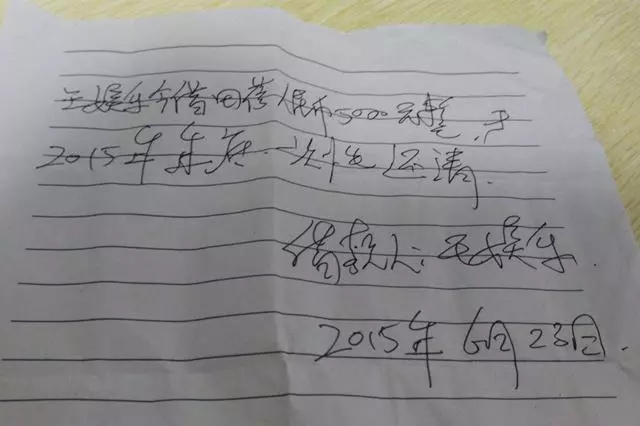 王娱乐今借田蓉人民币5000元整，于
2015年年底一次性还清。
借款人：王娱乐.
2015年6月23日.